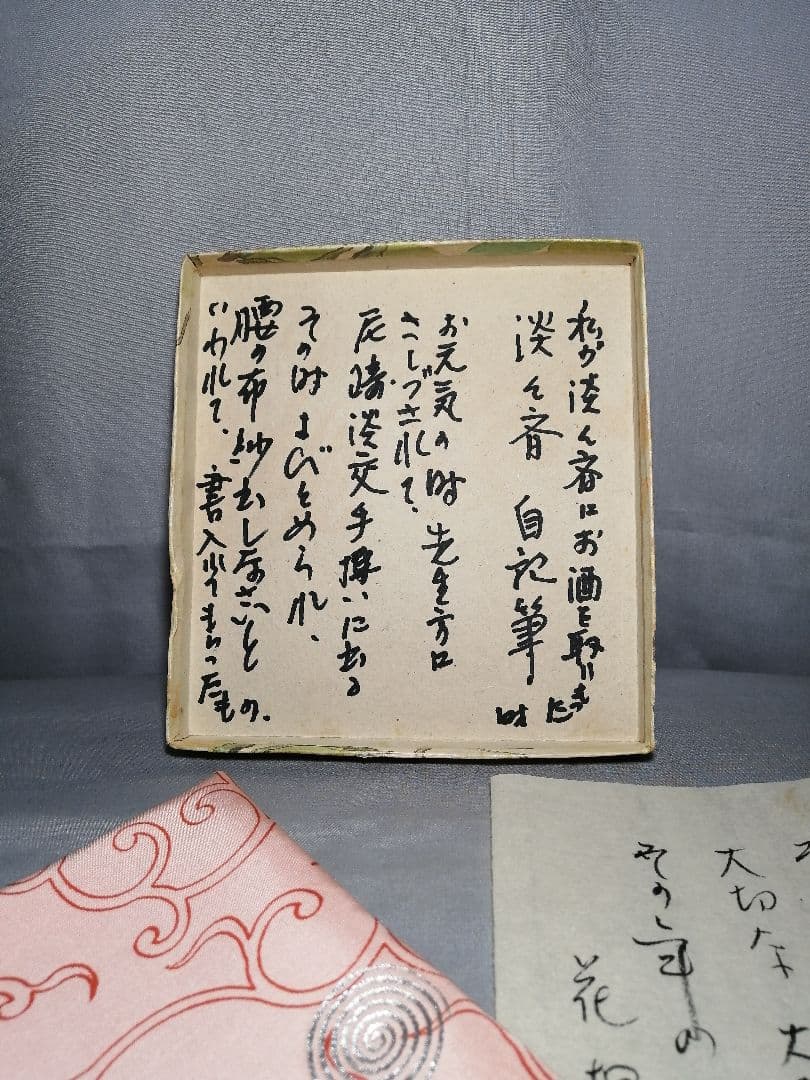 私が淡々斎にお酒を取りもった
時
淡々斎 自記筆
お元気の時先生方に
さしづされて、
尼崎淡交手伝いに出る
その時よびとめられ、
腰の布紗出しなさいと
いわれて、書入れてもらったもの。
大切な 大
その年の
花